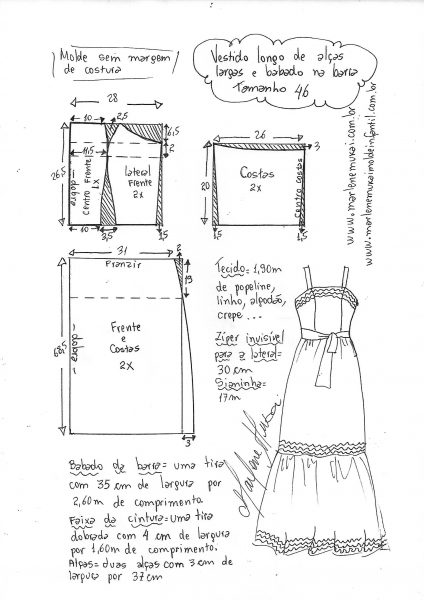 Molde sem margem
de costura
Vestido longo de alças
largas e babado na barra
Tamanho 46
28
10
2,5
6,5
2
11,5
26,5
dobra
Centro Frente
1x
lateral
Frente
2x
10
3,5
1,5
26
3
20
Costas
2x
Centro costas
1,5
1,5
www.marlenemukai.com.br
www.marlenemukaimoldeinfantil.com.br
31
2
Franzir
19
68,5
dobra
Frente
e
Costas
2X
3
Tecido = 1,90m
de popeline,
linho, algodão,
crepe ...
Ziper invisível
para a lateral =
30 cm
Sianinha =
17m
Marlene Mukai
Babado da barra = uma tira
com 35 cm de largura por
2,60m de comprimento.
Faixa da cintura = uma tira
dobrada com 4 cm de largura
por 1,60m de comprimento.
Alças = duas alças com 3 cm de
largura por 37 cm